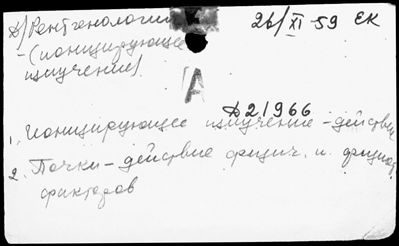 д/Рентгенологии 26/XI-59 ЕК
-(ионизирующее
излучение)
А
Д21966
1. Ионизирующее излучение - действие
2. Почки - действие физич. и физиот.
факторов